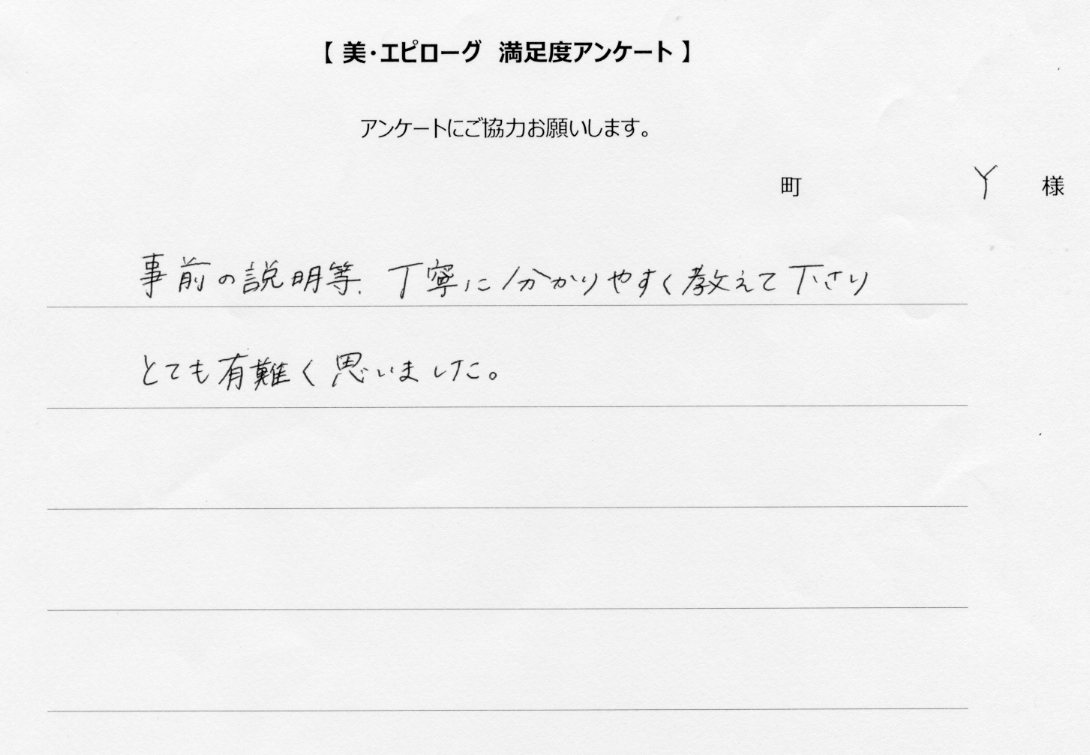 【 美・エピローグ 満足度アンケート 】
アンケートにご協力お願いします。
町 Y 様
事前の説明等、丁寧に分かりやすく教えて下さり
とても有難く思いました。